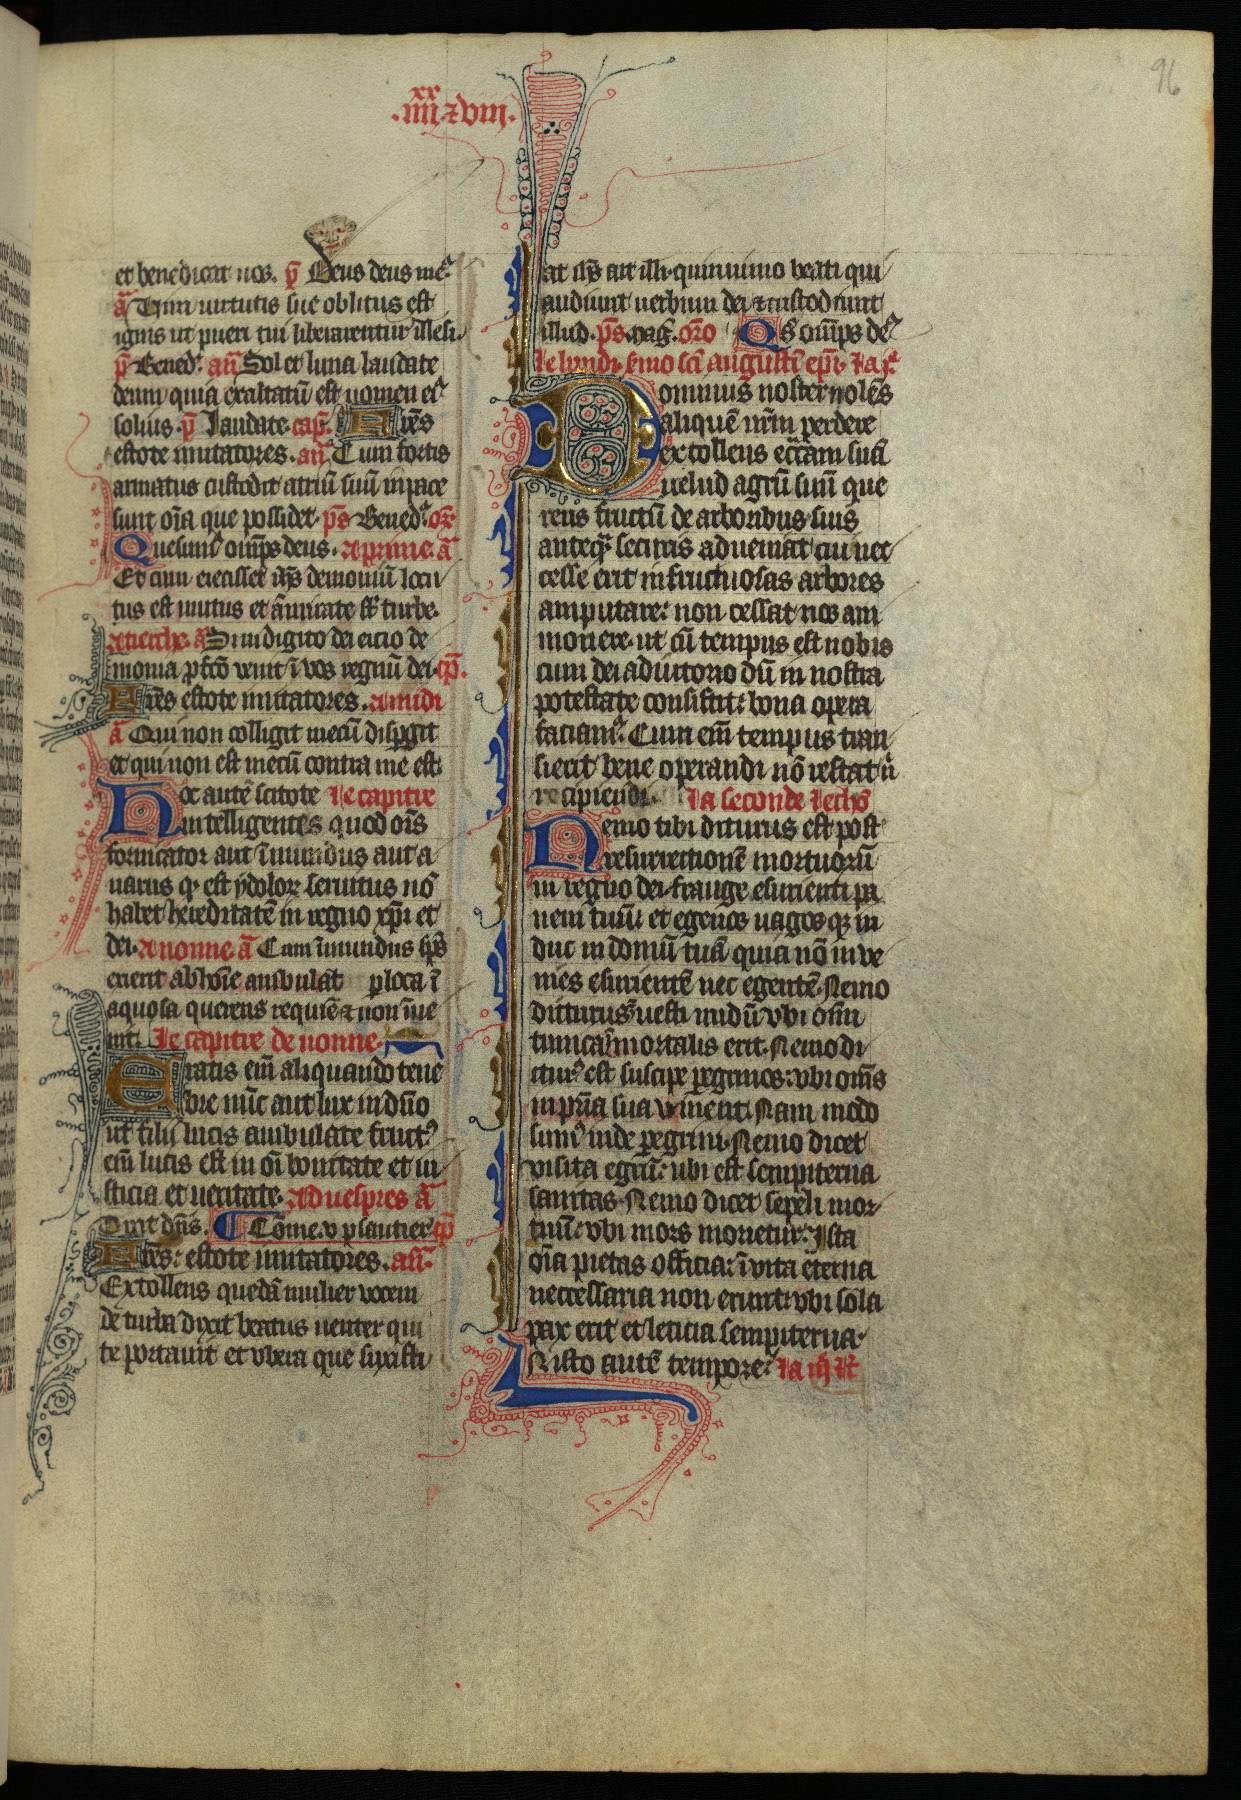 xx
.iiii. ⁊ viii.
96
et benedicat nos. p̄ Deus deus me᷒
a᷑ Uim uirtutis sue oblitus est
ignis ut pueri tui liberarentur illesi.
p̄ Bened᷑. an̄ Sol et luna laudate
deum quia exaltatū est nomen ei᷒
solius. p̄ laudate. cap̄. Fr̄es
estote imitatores. an̄ Cum fortis
armatus custodit atriū suū in pace
sunt oīa que possidet. ps̄ Bened᷑. or̄.
Quesum᷒ om̄ps deus. a prime. a᷑
Et cum eiecisset ih̄s demoniū locu
tus est mutus et āmirate st̄ turbe.
a tierche. a᷑ Si in digito dei eicio de
monia pfc̄o venit ī vos regnū dei. cp̄.
Fr̄es estote imitatores. a midi
a᷑ Qui non colligit mecū dispgit
et qui non est mecū contra me est.
Hoc autē scitote le capitre
intelligentes quod oīs
fornicator aut īmundus aut a
uarus qᷓ est ydolor̄ seruitus nō
habet hereditatē in regno xp̄i et
dei. a nonne a᷑ Cum īmundus sp̄s
exierit ab hoīe ambulat p loca ī
aquosa querens requiē ⁊ non īue
nit. le capitre de nonne.
Eratis em̄ aliquando tene
bre nūc aut lux in dn̄o
ut filii lucis ambulate fruct᷒
em̄ lucis est in oī bonitate et iu
sticia et ueritate. a uespres a᷑
Dixit dn̄s. Come v psautier cp̄
Fr̄es: estote imitatores. an̄.
Extollens quedā mulier vocem
de turba dixit beatus uenter qui
te portauit et vbera que suxisti
at ih̄s ait illi. quinimo beati qui
audiunt uerbum dei ⁊ custodiunt
illud. ps̄. mag̅. oro̅ Qs̄ om̄ps de᷒
le lundi. smo sc̄i augustī ep̄i. la j᷑
Dominus noster nolēs
aliquē nr̄m perdere
excollens ecc̄am suā
uelud agrū suū que
rens fructū de arboribus suis
anteqᷓ securis adueniat cui nec
cesse erit infructuosas arbores
amputare: non cessat nos am
monere. ut cū tempus est nobis
cum dei adiutorio dū in nostra
potestate consistit: bona opera
faciam᷒. Cum em̄ tempus tran
sierit bene operandi nō restat n̄
recipiendi. la seconde lechō
Nemo tibi diturus est post
resurrectionē mortuorū
in regno dei. frange esurienti pa
nem tuū: et egenos uagos qꝫ in
duc in domū tuā quia nō inue
nies esurientē nec egentē. Nemo
dicturus: uesti nudū. vbi om̄i
tunica īmortalis erit. Nemo di
ctur᷒ est suscipe pegrinos: vbi om̄s
in pr̄ia sua viuent. Nam modo
sum᷒ inde pegrini. Nemo dicet
visita egrū: ubi est sempiterna
sanitas. Nemo dicet sepeli mor
tuū: vbi mors morietur: Ista
oīa pietas officia: ī vita eterna
neccessaria non erunt: vbi sola
pax erit et leticia sempiterna.
In isto autē tempore: la iij. R̄